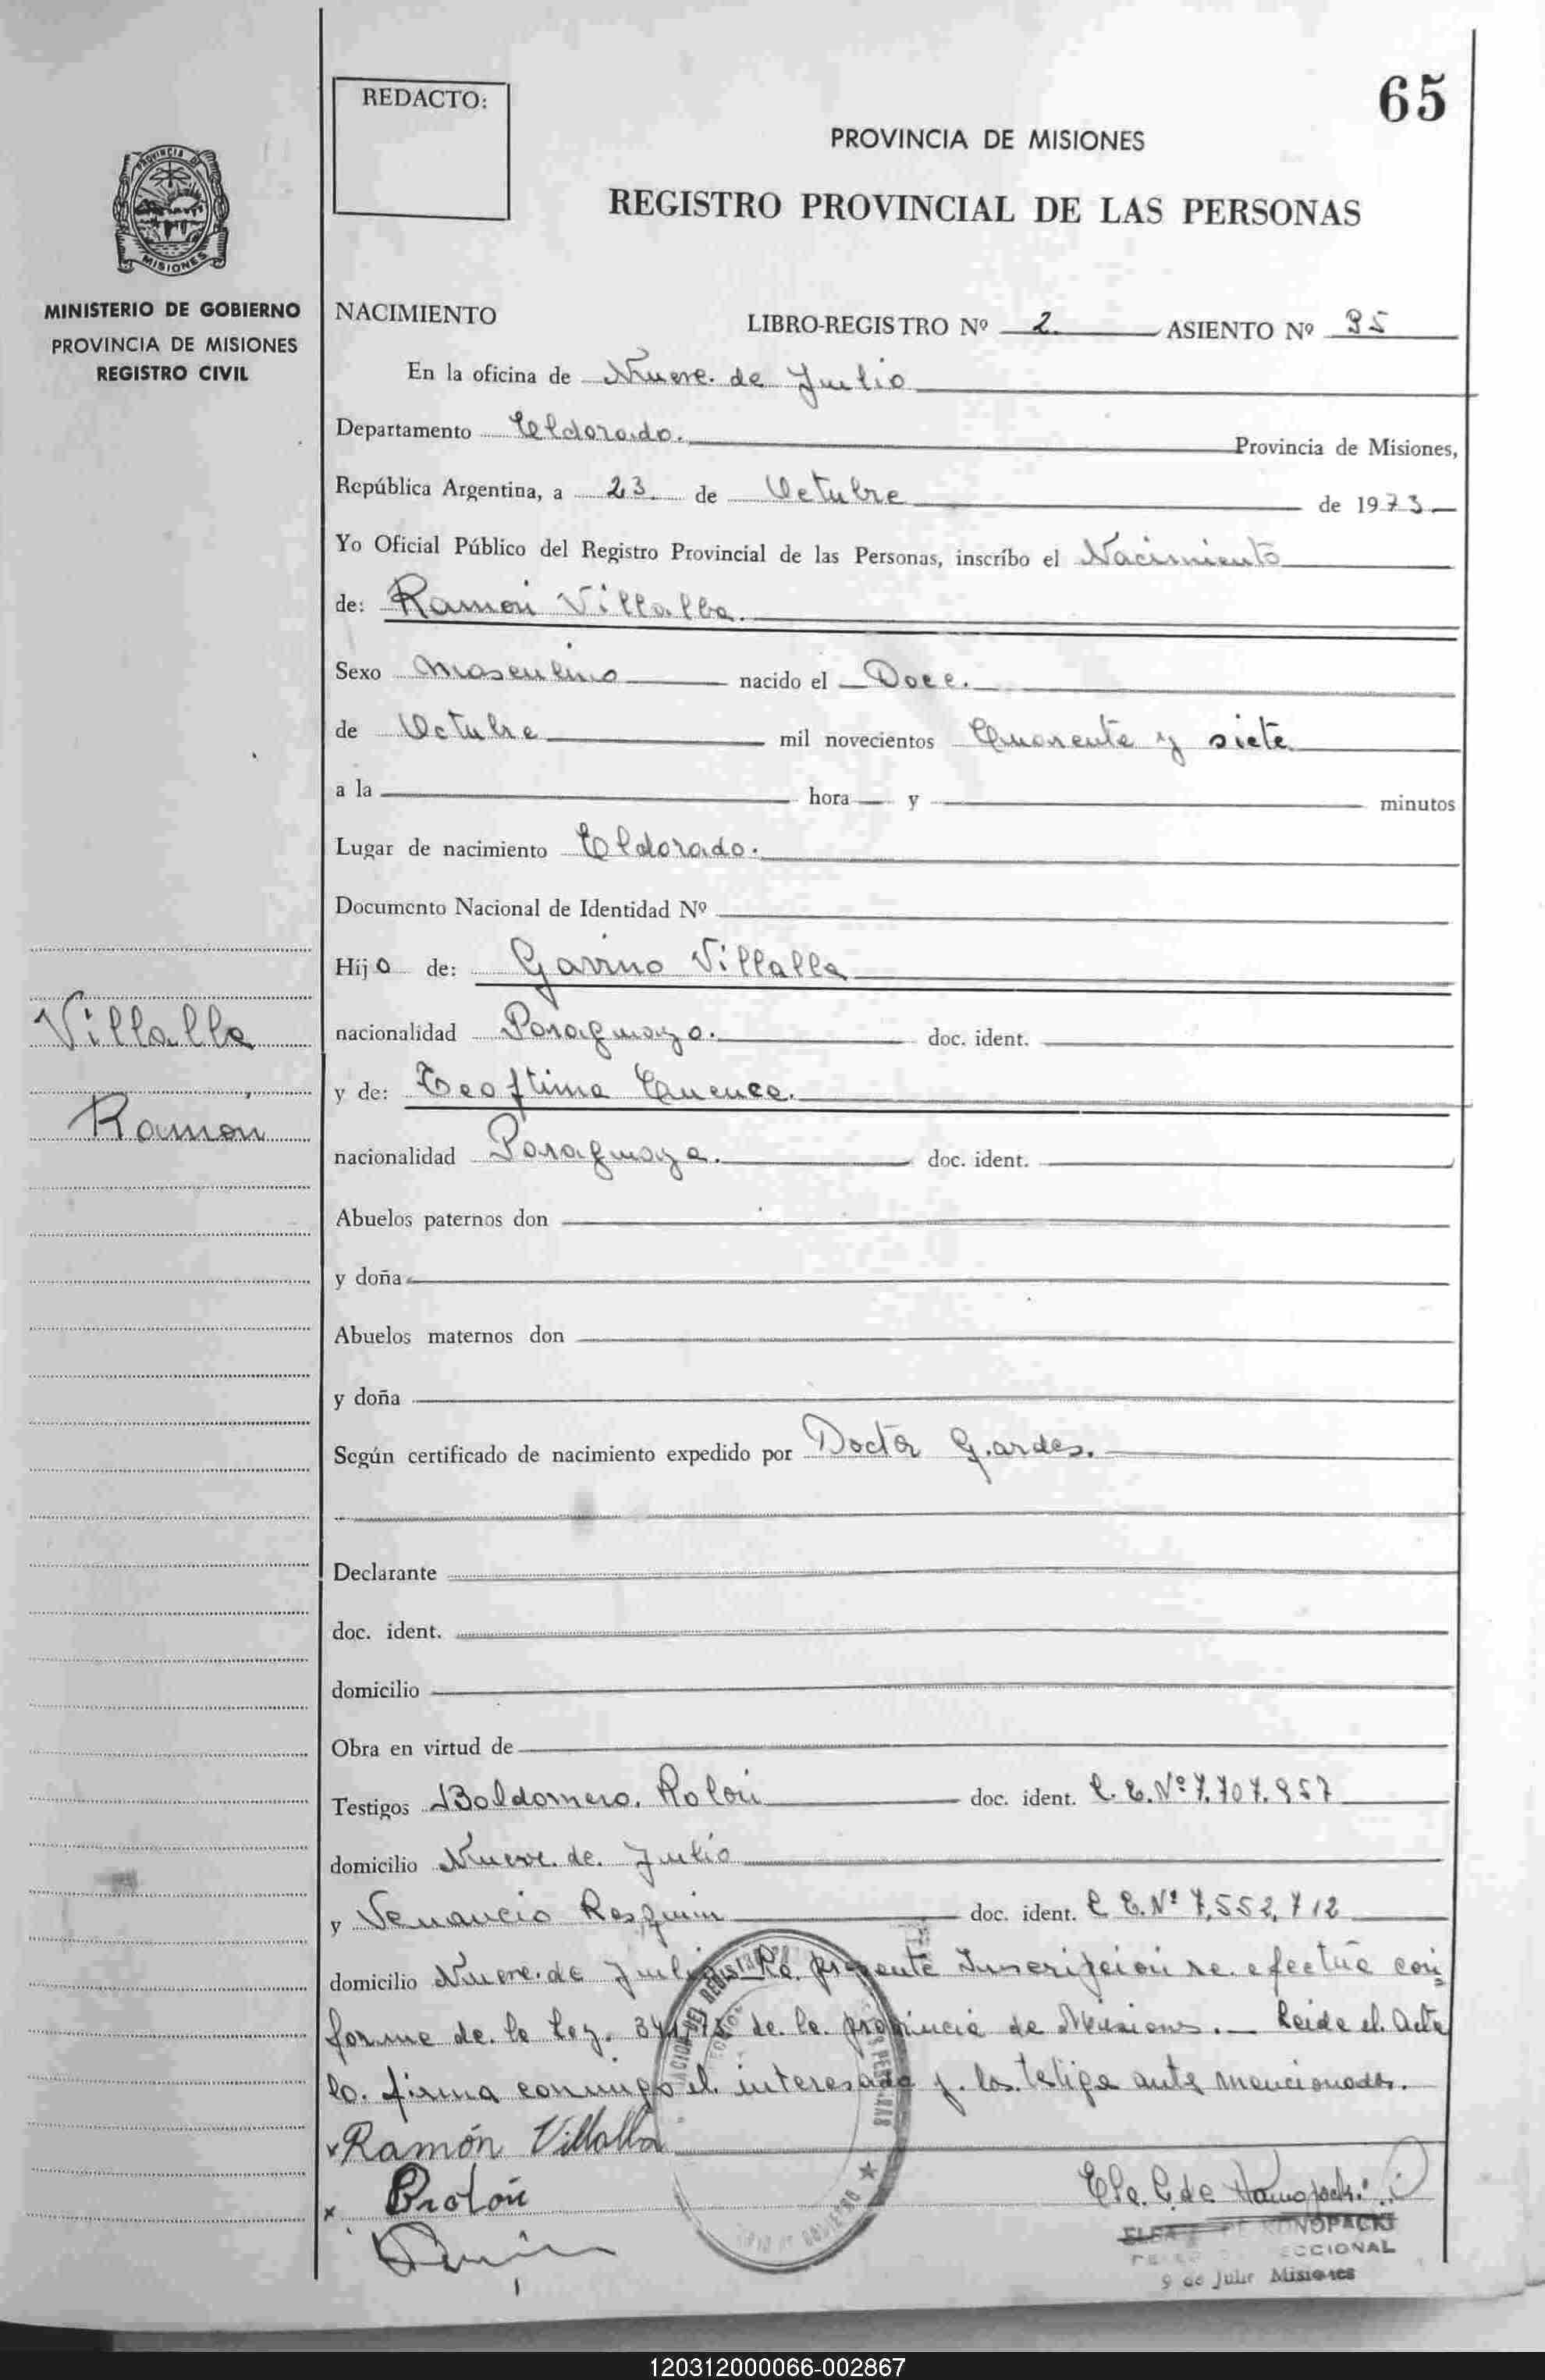 65
REDACTO:
PROVINCIA DE MISIONES
REGISTRO PROVINCIAL DE LAS PERSONAS
PROVINCIA DE
MISIONES
MINISTERIO DE GOBIERNO
PROVINCIA DE MISIONES
REGISTRO CIVIL
NACIMIENTO
LIBRO-REGISTRO Nº 2 ASIENTO Nº 95
En la oficina de Nueve de Julio
Departamento Eldorado. Provincia de Misiones,
República Argentina, a 23 de Octubre de 1973
Yo Oficial Público del Registro Provincial de las Personas, inscríbo el Nacimiento
de: Ramón Villalba.
Sexo Masculino nacido el Doce.
de Octubre mil novecientos Cuarenta y siete
a la hora y minutos
Lugar de nacimiento Eldorado.
Documento Nacional de Identidad Nº
Hijo de: Gavino Villalba
Villalba
nacionalidad Paraguayo. doc. ident.
y de: Teoftima Cuence.
Ramón
nacionalidad Paraguaya. doc. ident.
Abuelos paternos don
y doña
Abuelos maternos don
y doña
Según certificado de nacimiento expedido por Doctor Gardes.
Declarante
doc. ident.
domicilio
Obra en virtud de
Testigos Baldomero Rolón doc. ident. L.E. Nº 7.707.957
domicilio Nueve de Julio
y Venancio Resquin doc. ident. L.E. Nº 7,552,712
domicilio Nueve de Julio La presente Inscripción se efectúe con
forme de la Ley. de la provincia de Misiones. Leida el Acta
lo firma conmigo el interesado y los testigo ante mencionados.
Ramón Villalba
BRolón
KONOPACKI
CCIONAL
9 de Julio Misiones
120312000066-002867